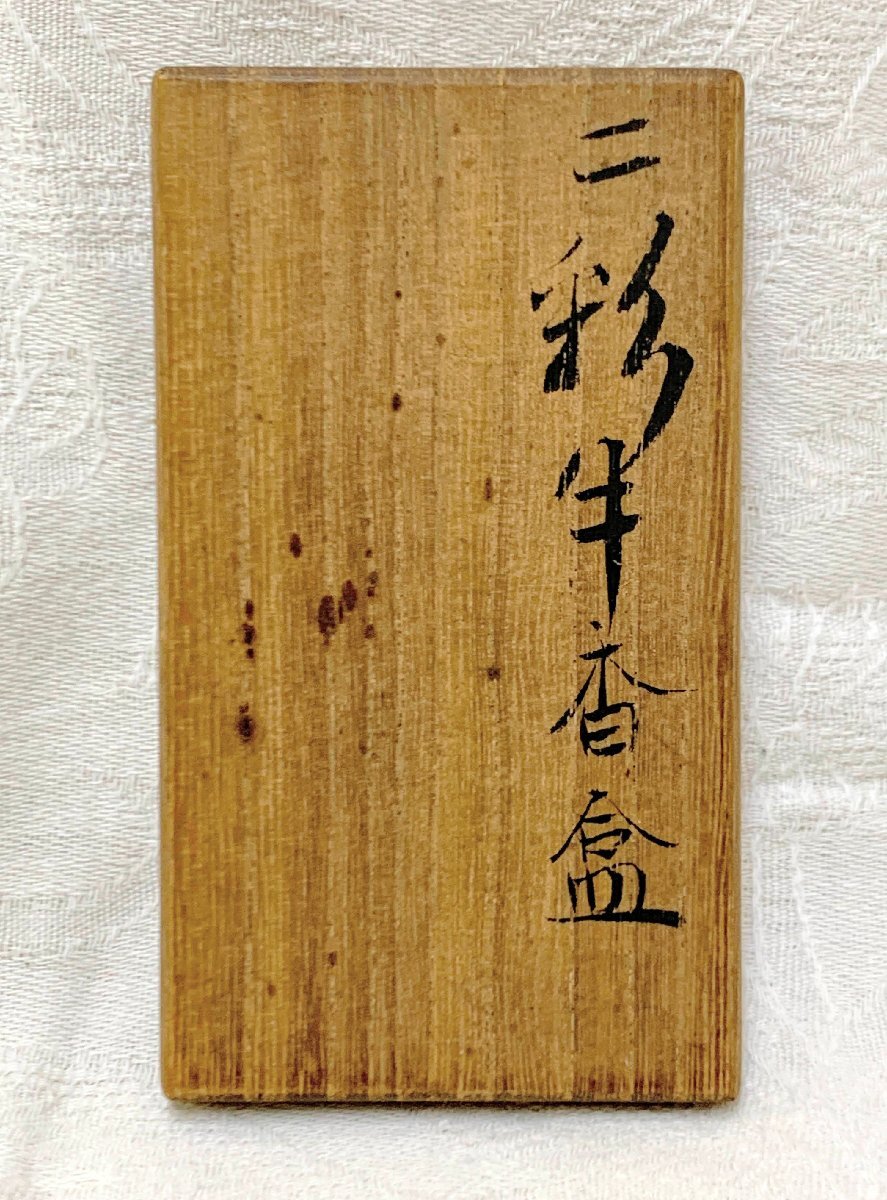 二彩牛香盒